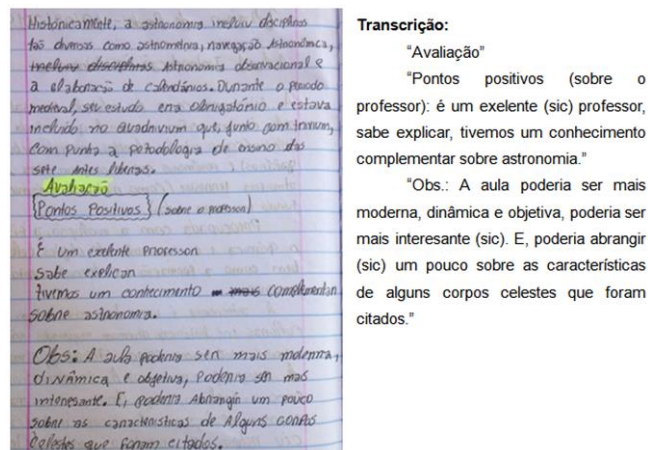 Históricamente, a astronomia incluiu disciplinas
tão diversas como astrometria, navegação Astronômica,
incluiu disciplinas Astronomia observacional e
a elaboração de calendários. Durante o período
medieval, seu estudo era obrigatório e estava
incluído no Quadrivium que, junto com trivium,
das
sete Artes liberais.
Avaliação
{Pontos Positivos} (sobre o professor)
É um exelente professor
Sabe explicar
tivemos um conhecimento mais complementar
sobre astronomia.
Obs: A aula poderia ser mais moderna,
dinâmica e objetiva, poderia ser mais
interesante. E, poderia Abrangir um pouco
sobre as características de Alguns corpos
Celestes que foram citados.
Transcrição:
"Avaliação"
"Pontos positivos (sobre o
professor): é um exelente (sic) professor,
sabe explicar, tivemos um conhecimento
complementar sobre astronomia."
"Obs.: A aula poderia ser mais
moderna, dinâmica e objetiva, poderia ser
mais interesante (sic). E, poderia abrangir
(sic) um pouco sobre as características
de alguns corpos celestes que foram
citados."